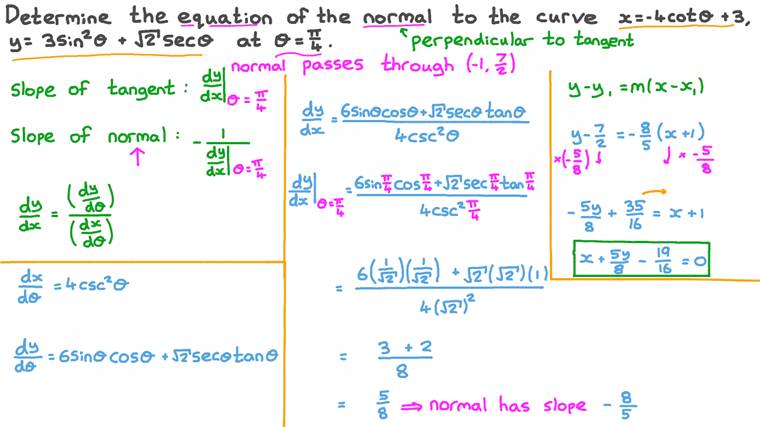 Determine the equation of the normal to the curve x=-4cotθ+3,
y= 3sin²θ + √2 secθ at θ=π/4.
perpendicular to tangent
normal passes through (-1, 7/2)
Slope of tangent: dy/dx|θ=π/4
Slope of normal: -1/(dy/dx|θ=π/4)
dy/dx = (dy/dθ)/(dx/dθ)
dx/dθ = 4csc²θ
dy/dθ = 6sinθcosθ + √2 secθtanθ
dy/dx = (6sinθcosθ+√2 secθtanθ)/(4csc²θ)
dy/dx|θ=π/4 = (6sin π/4 cos π/4 + √2 sec π/4 tan π/4)/(4csc² π/4)
= (6(1/√2)(1/√2) + √2(√2)(1))/(4(√2)²)
= (3+2)/8
= 5/8 ⇒ normal has slope -8/5
y-y₁=m(x-x₁)
y-7/2 = -8/5(x+1)
×(-5/8) ↓ ↓ × -5/8
-5y/8 + 35/16 = x+1
x + 5y/8 - 19/16 = 0